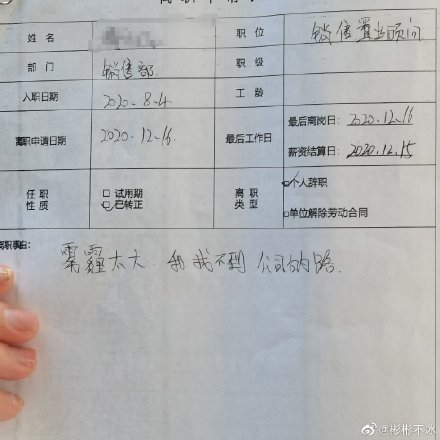 离职申请
姓名 职位 销售置业顾问
部门 销售部 职级
入职日期 2020-8-4 工龄
离职申请日期 2020-12-16 最后工作日 最后离岗日：2020.12.16
薪资结算日：2020.12.15
任职性质 试用期 已转正 离职类型 个人辞职 单位解除劳动合同
离职事由：雾霾太大，我找不到公司的路.
@彬彬不冰